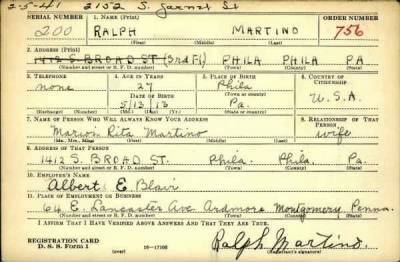 2-5-41 2152 S. Garnet St
SERIAL NUMBER 1. NAME (Print) ORDER NUMBER
200 RALPH MARTINO 756
(First) (Middle) (Last)
2. ADDRESS (Print)
1412 S. BROAD ST (3rd Fl) PHILA PHILA PA
(Number and street or R. F. D. number) (Town) (County) (State)
3. TELEPHONE 4. AGE IN YEARS 5. PLACE OF BIRTH 6. COUNTRY OF CITIZENSHIP
none 27 Phila
DATE OF BIRTH (Town or county)
5/13/13 Pa. U.S.A.
(Exchange) (Number) (Mo.) (Day) (Yr.) (State or country)
7. NAME OF PERSON WHO WILL ALWAYS KNOW YOUR ADDRESS 8. RELATIONSHIP OF THAT PERSON
Marion Rita Martino wife
(Mr., Mrs., Miss) (First) (Middle) (Last)
9. ADDRESS OF THAT PERSON
1412 S. BROAD ST. Phila. Phila. Pa.
(Number and street or R. F. D. number) (Town) (County) (State)
10. EMPLOYER'S NAME
Albert E. Blair
11. PLACE OF EMPLOYMENT OR BUSINESS
64 E. Lancaster Ave Ardmore Montgomery Penna.
(Number and street or R. F. D. number) (Town) (County) (State)
I AFFIRM THAT I HAVE VERIFIED ABOVE ANSWERS AND THAT THEY ARE TRUE.
REGISTRATION CARD
D. S. S. Form 1 (over) 16-17105 Ralph Martino.
(Registrant's signature)